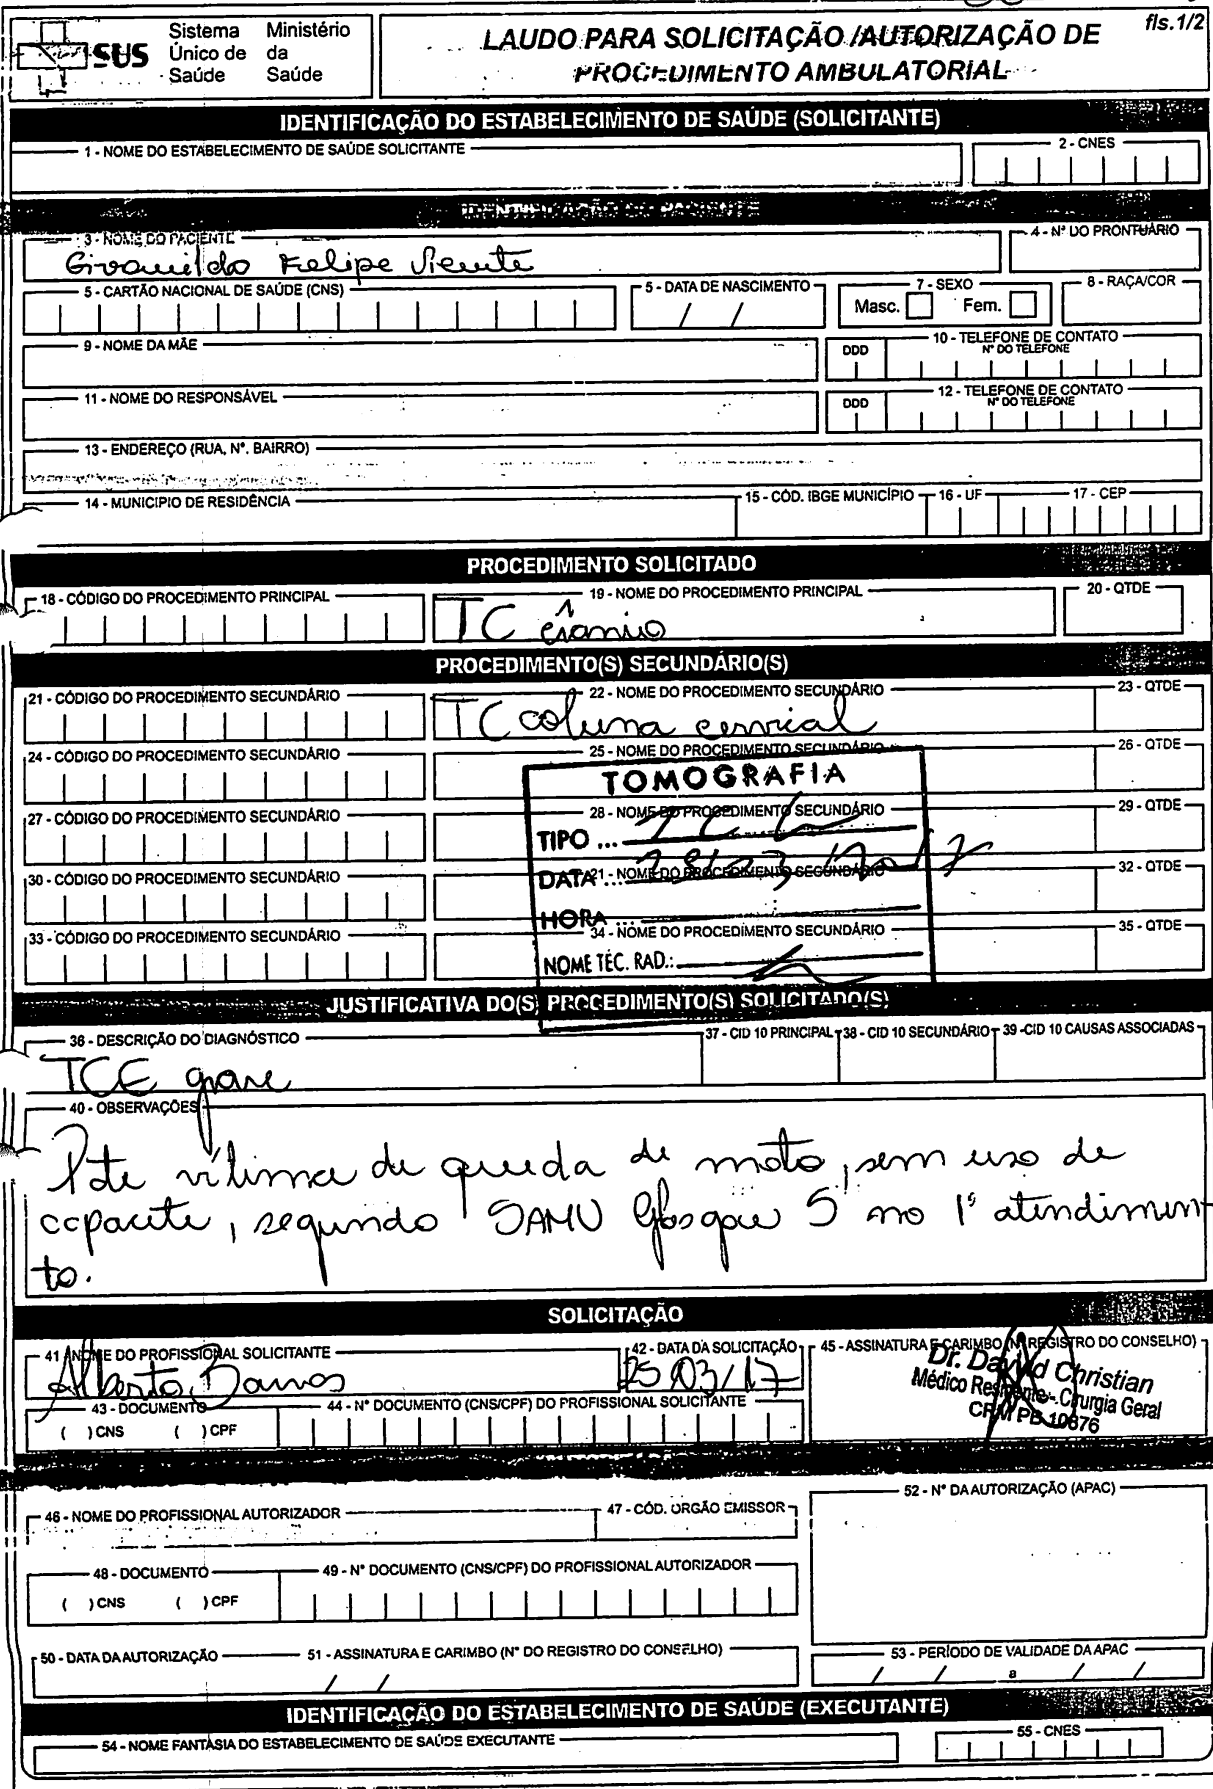 fls.1/2
SUS Sistema Único de Saúde Ministério da Saúde
LAUDO PARA SOLICITAÇÃO /AUTORIZAÇÃO DE
PROCEDIMENTO AMBULATORIAL
IDENTIFICAÇÃO DO ESTABELECIMENTO DE SAÚDE (SOLICITANTE)
1 - NOME DO ESTABELECIMENTO DE SAÚDE SOLICITANTE 2 - CNES
IDENTIFICAÇÃO DO PACIENTE
3 - NOME DO PACIENTE 4 - N° DO PRONTUÁRIO
Givanildo Felipe Vicente
5 - CARTÃO NACIONAL DE SAÚDE (CNS) 5 - DATA DE NASCIMENTO 7 - SEXO 8 - RAÇA/COR
/ / Masc. Fem.
9 - NOME DA MÃE 10 - TELEFONE DE CONTATO
DDD N° DO TELEFONE
11 - NOME DO RESPONSÁVEL 12 - TELEFONE DE CONTATO
DDD N° DO TELEFONE
13 - ENDEREÇO (RUA, N°. BAIRRO)
14 - MUNICIPIO DE RESIDÊNCIA 15 - CÓD. IBGE MUNICÍPIO 16 - UF 17 - CEP
PROCEDIMENTO SOLICITADO
18 - CÓDIGO DO PROCEDIMENTO PRINCIPAL 19 - NOME DO PROCEDIMENTO PRINCIPAL 20 - QTDE
TC crânio
PROCEDIMENTO(S) SECUNDÁRIO(S)
21 - CÓDIGO DO PROCEDIMENTO SECUNDÁRIO 22 - NOME DO PROCEDIMENTO SECUNDÁRIO 23 - QTDE
TC coluna cervical
24 - CÓDIGO DO PROCEDIMENTO SECUNDÁRIO 25 - NOME DO PROCEDIMENTO SECUNDÁRIO 26 - QTDE
TOMOGRAFIA
27 - CÓDIGO DO PROCEDIMENTO SECUNDÁRIO 28 - NOME DO PROCEDIMENTO SECUNDÁRIO 29 - QTDE
TIPO ...
30 - CÓDIGO DO PROCEDIMENTO SECUNDÁRIO 21 - NOME DO PROCEDIMENTO SECUNDÁRIO 32 - QTDE
DATA ...
HORA ...
33 - CÓDIGO DO PROCEDIMENTO SECUNDÁRIO 34 - NOME DO PROCEDIMENTO SECUNDÁRIO 35 - QTDE
NOME TÉC. RAD.:
JUSTIFICATIVA DO(S) PROCEDIMENTO(S) SOLICITADO(S)
36 - DESCRIÇÃO DO DIAGNÓSTICO 37 - CID 10 PRINCIPAL 38 - CID 10 SECUNDÁRIO 39 -CID 10 CAUSAS ASSOCIADAS
TCE grave
40 - OBSERVAÇÕES
Pcte vítima de queda de moto, sem uso de
capacete, segundo SAMU Glasgow 5 no 1º atendimen-
to.
SOLICITAÇÃO
41 - NOME DO PROFISSIONAL SOLICITANTE 42 - DATA DA SOLICITAÇÃO 45 - ASSINATURA E CARIMBO (N° REGISTRO DO CONSELHO)
Alberto Barros 25/03/17
Dr. David Christian
Médico Residente - Cirurgia Geral
CRM PB 10876
43 - DOCUMENTO 44 - N° DOCUMENTO (CNS/CPF) DO PROFISSIONAL SOLICITANTE
( ) CNS ( ) CPF
46 - NOME DO PROFISSIONAL AUTORIZADOR 47 - CÓD. ORGÃO EMISSOR 52 - N° DA AUTORIZAÇÃO (APAC)
48 - DOCUMENTO 49 - N° DOCUMENTO (CNS/CPF) DO PROFISSIONAL AUTORIZADOR
( ) CNS ( ) CPF
50 - DATA DA AUTORIZAÇÃO 51 - ASSINATURA E CARIMBO (N° DO REGISTRO DO CONSELHO) 53 - PERÍODO DE VALIDADE DA APAC
/ / / / a / /
IDENTIFICAÇÃO DO ESTABELECIMENTO DE SAÚDE (EXECUTANTE)
54 - NOME FANTASIA DO ESTABELECIMENTO DE SAÚDE EXECUTANTE 55 - CNES